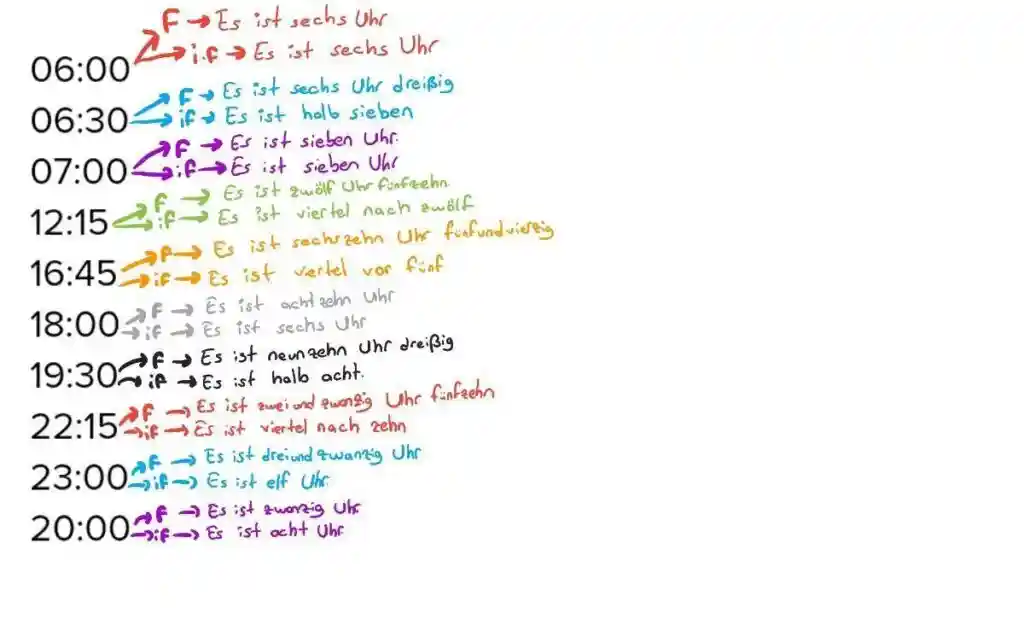 F → Es ist sechs Uhr
06:00 i.F → Es ist sechs Uhr
F → Es ist sechs Uhr dreißig
06:30 iF → Es ist halb sieben
F → Es ist sieben Uhr.
07:00 iF → Es ist sieben Uhr
F → Es ist zwölf Uhr fünfzehn
12:15 iF → Es ist viertel nach zwölf
F → Es ist sechszehn Uhr fünfundvierzig
16:45 iF → Es ist viertel vor fünf
F → Es ist achtzehn Uhr
18:00 iF → Es ist sechs Uhr
F → Es ist neunzehn Uhr dreißig
19:30 iF → Es ist halb acht.
F → Es ist zweiundzwanzig Uhr fünfzehn
22:15 iF → Es ist viertel nach zehn
F → Es ist dreiundzwanzig Uhr
23:00 iF → Es ist elf Uhr
F → Es ist zwanzig Uhr
20:00 iF → Es ist acht Uhr